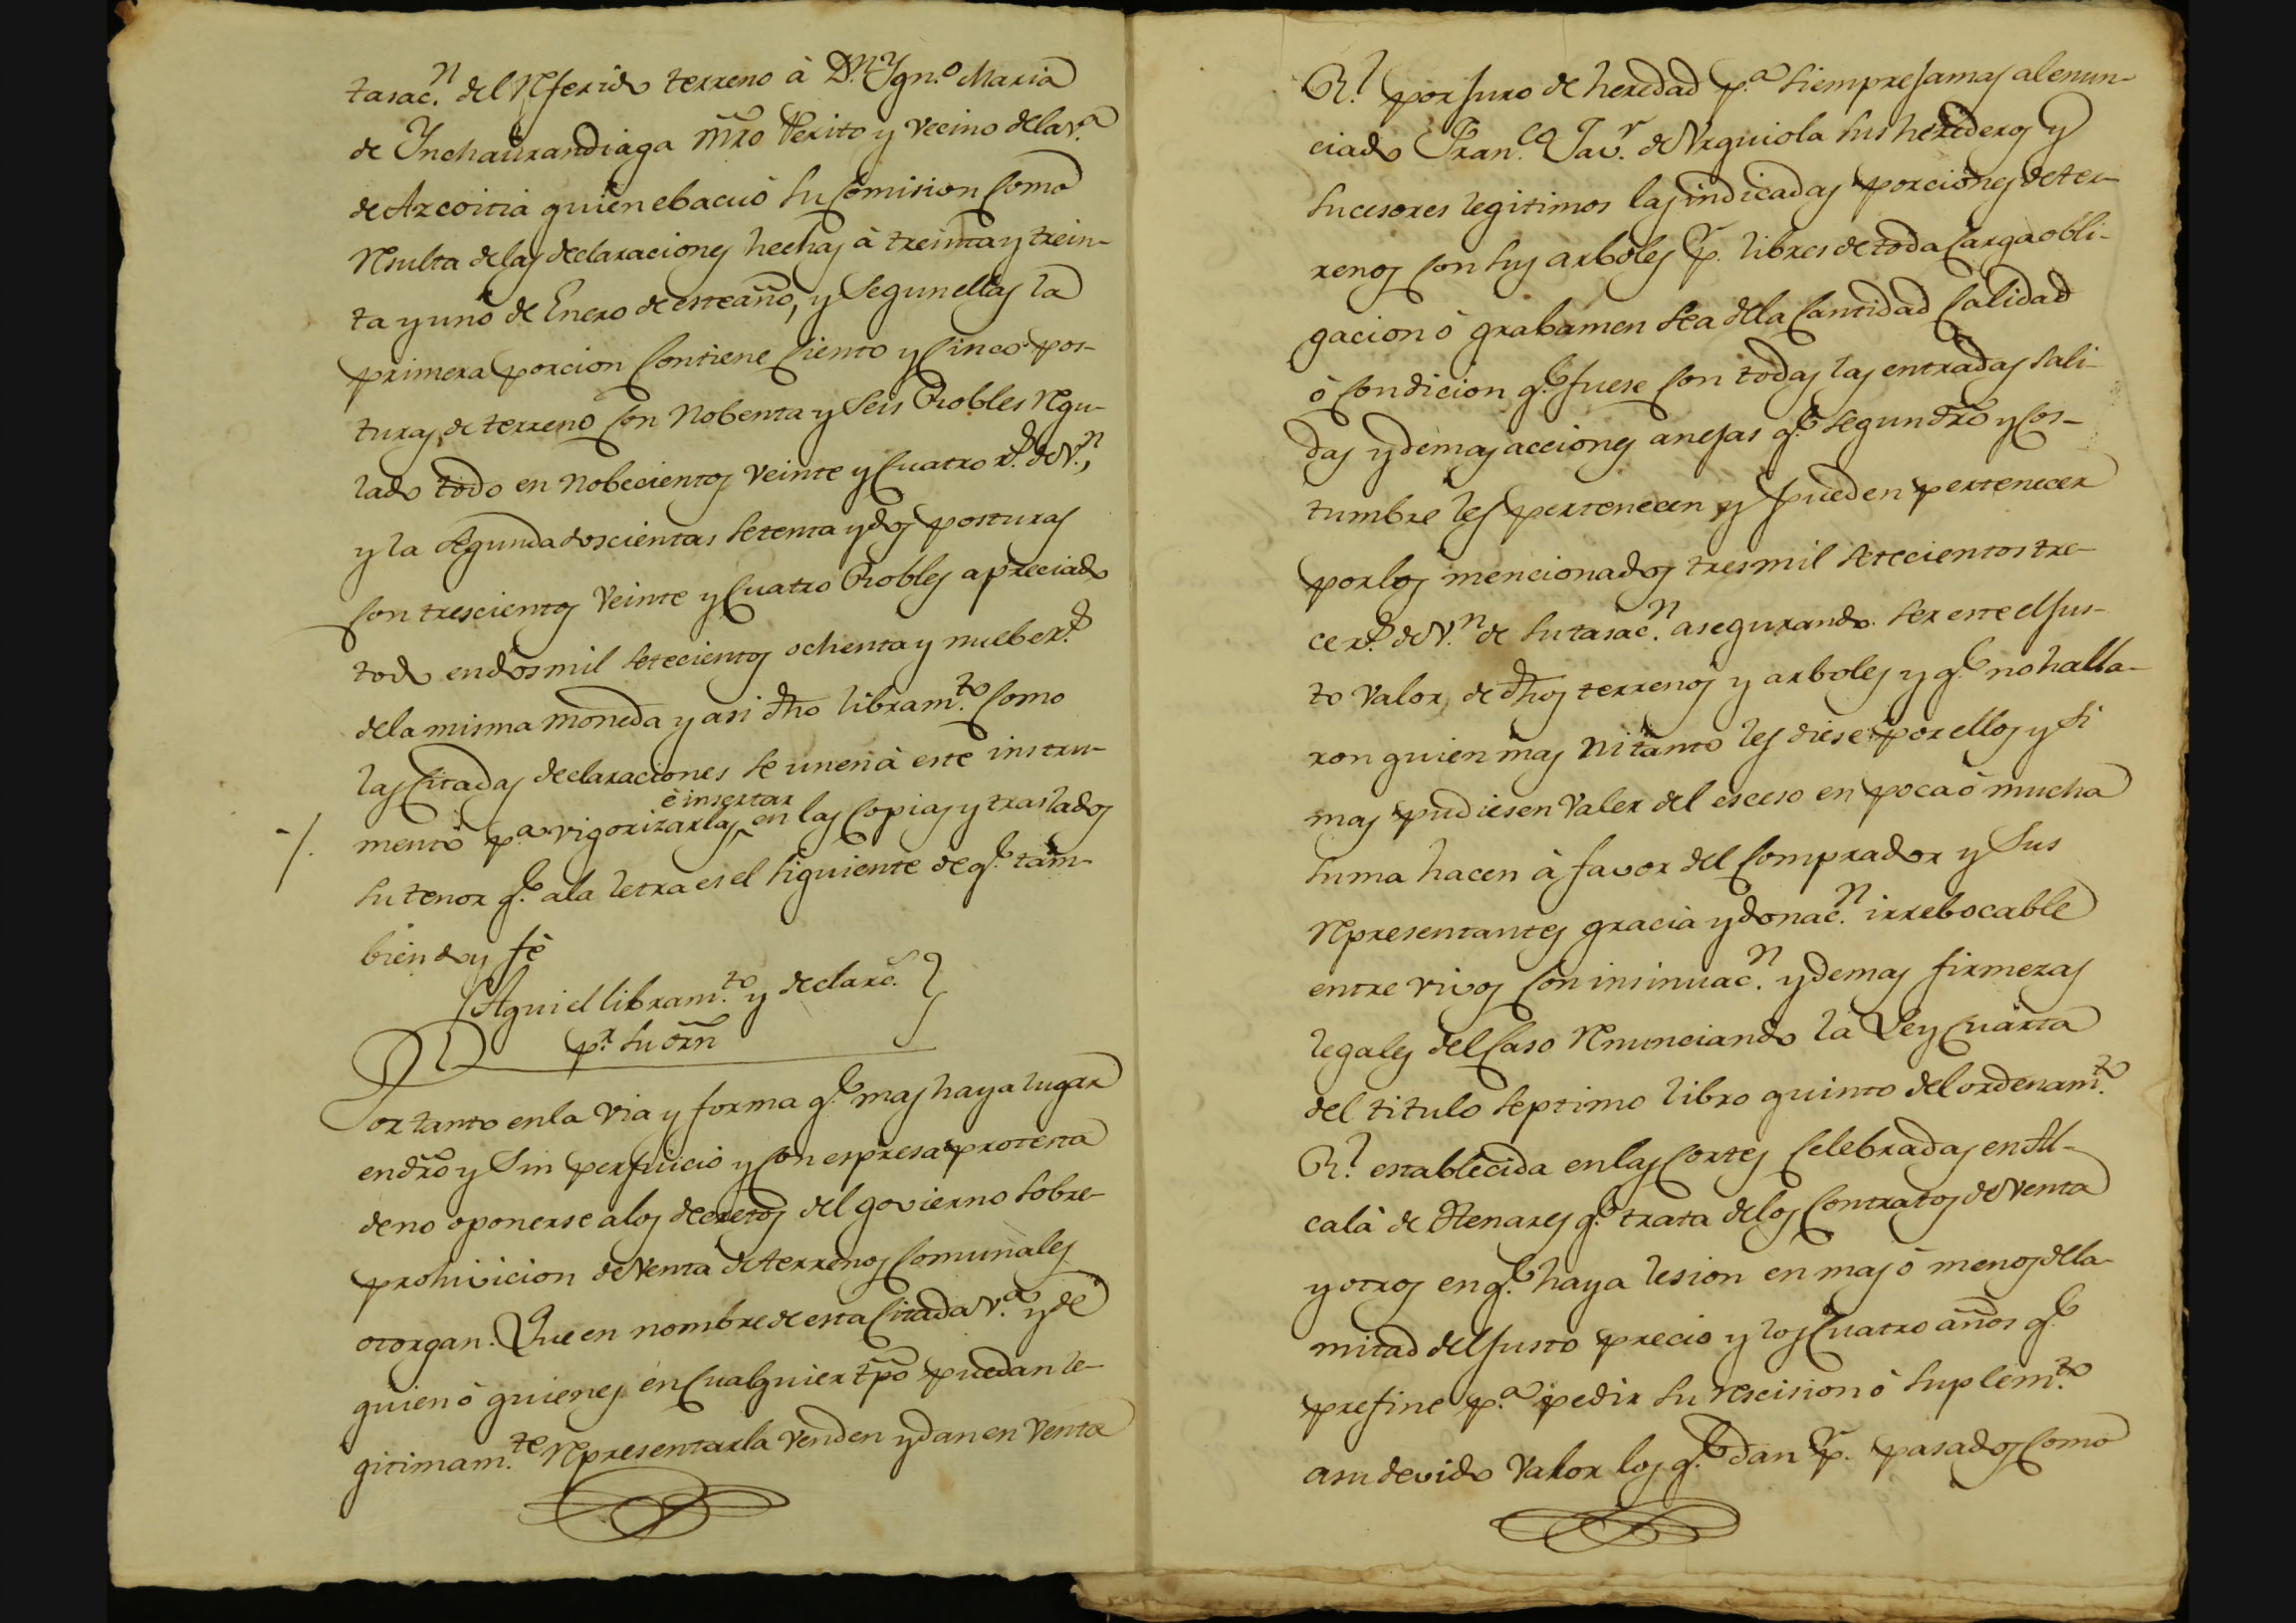 tasac.n del Referido terreno à D.n Ygn.o Maria
de Ynchaurandiaga Mro Perito y Vecino dela v.a
de Azcoitia quien ebacuò su Comision Como
Resulta delas declaraciones hechas à treinta y trein-
ta y uno de Enero de este año, y Segun ellas la
primera porcion Contiene Ciento y Cinco pos-
turas de terreno Con Nobenta y Seis Robles Regu-
lado todo en Nobecientos Veinte y Cuatro r.s de V.n,
y la Segunda doscientas Setenta y dos posturas
Con trescientos Veinte y Cuatro Robles apreciado
todo en dos mil Setecientos ochenta y nueber.s
dela misma moneda y asi dho libram.to Como
las Citadas declaraciones Se unen à este instru-
è insertar
-/. mento p.a vigorizarlas en las Copias y traslados
Su tenor q.e ala letra es el Siguiente de q.e tam-
bien doy fè
Aqui el libram.to y declarc.
p.r Su orn
Por tanto en la via y forma q.e mas haya lugar
en dro y Sin perjuicio y Con espresa protesta
de no oponerse alos decretos del govierno Sobre
prohivicion de Venta de terrenos Comunales
otorgan: Que en nombre de esta Citada V.a y de
quien ò quienes en Cualquier tpo puedan le-
gitimam.te Representarla venden y dan en Venta
R.l por Juro de heredad p.a Siempre Jamas al enun-
ciado Fran.co Jav.r de Urquiola Sus herederos y
Sucesores legitimos las indicadas porciones de ter-
renos Con Sus arboles p.r libres de toda Carga obli-
gacion ò grabamen Sea dela Cantidad Calidad
ò Condicion q.e fuese Con todas las entradas Sali-
das y demas acciones anejas q.e Segun dro y Cos-
tumbre les pertenecen y pueden pertenecer
por los mencionados tres mil Setecientos tre-
ce r.s de V.n de Su tasac.n asegurando Ser este el Jus-
to Valor de dhos terrenos y arboles y q.e no halla-
ron quien mas ni tanto les diese por ellos y Si
mas pudiesen Valer del esceso en poca ò mucha
Suma hacen à favor del Comprador y Sus
Representantes gracia y donac.n irrebocable
entre vivos Con insinuac.n y demas firmezas
legales del Caso Renunciando la Ley Cuarta
del titulo Septimo libro quinto del ordenam.to
R.l establecida en las Cortes Celebradas en Al-
calà de Henares q.e trata delos Contratos de Venta
y otros en q.e haya lesion en mas ò menos dela
mitad del Justo precio y los Cuatro años q.e
prefine p.a pedir Su rescision ò Suplem.to
asu devido Valor los q.e dan p.r pasados Como